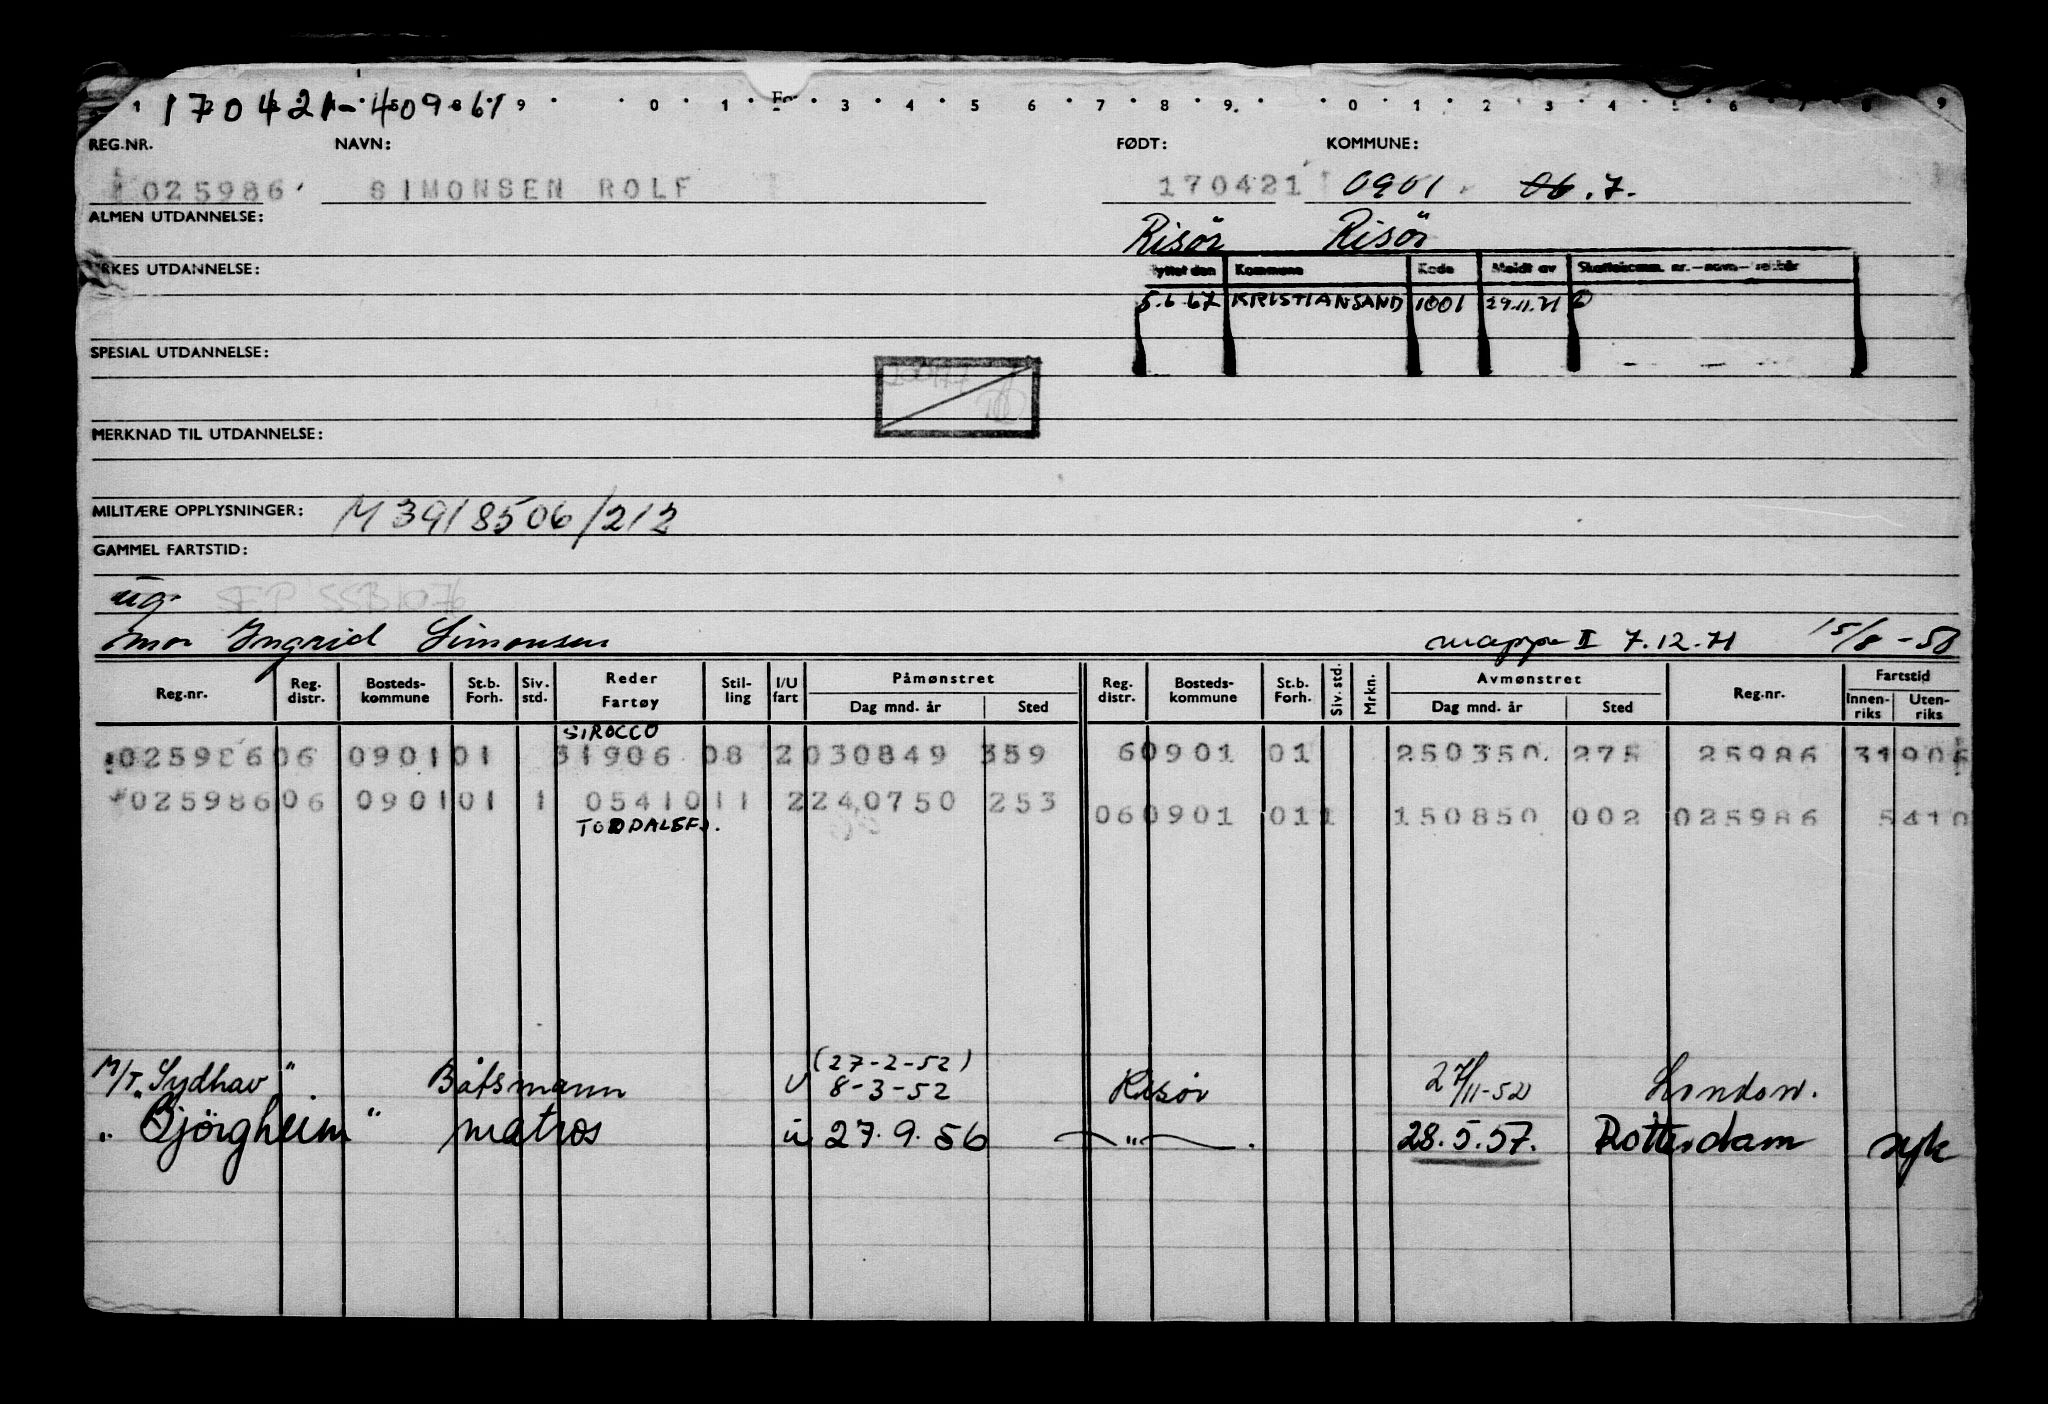 170421-40961
1 9 0 1 3 4 5 6 7 8 9 0 1 2 3 4 5 6 7 8 9
REG.NR. NAVN: FØDT: KOMMUNE:
025986 SIMONSEN ROLF 170421 0901 06.7.
ALMEN UTDANNELSE: Risör Risör
RKES UTDANNELSE: yttet den Kommune Kode Meldt av
5.6.67 KRISTIANSAND 1001 29.11.71
SPESIAL UTDANNELSE:
MERKNAD TIL UTDANNELSE:
MILITÆRE OPPLYSNINGER: M 3918506/212
GAMMEL FARTSTID:
ug. SEP SSB 1076
mor Ingrid Simonsen mappe II 7.12.71 15/8-58
Reg.nr. Reg. distr. Bosteds-kommune St.b. Forh. Siv. std. Reder Fartøy Stil-ling I/U fart Påmønstret Dag mnd. år Sted Reg. distr. Bosteds-kommune St.b. Forh. Siv. std. Mrkn. Avmønstret Dag mnd. år Sted Reg.nr. Fartstid Innen-riks Uten-riks
SIROCCO
025986 06 0901 01 31906 08 2 030849 359 6 0901 01 250350 275 25986 31906
025986 06 0901 01 1 05410 11 2 240750 253 06 0901 01 1 150850 002 025986 5410
TODDALSFJ.
(27-2-52)
M/T. "Sydhav" Båtsmann U 8-3-52 Risör 27/11-52 London.
" Bjørgheim" matros u 27.9.56 — " — . 28.5.57. Rotterdam syk